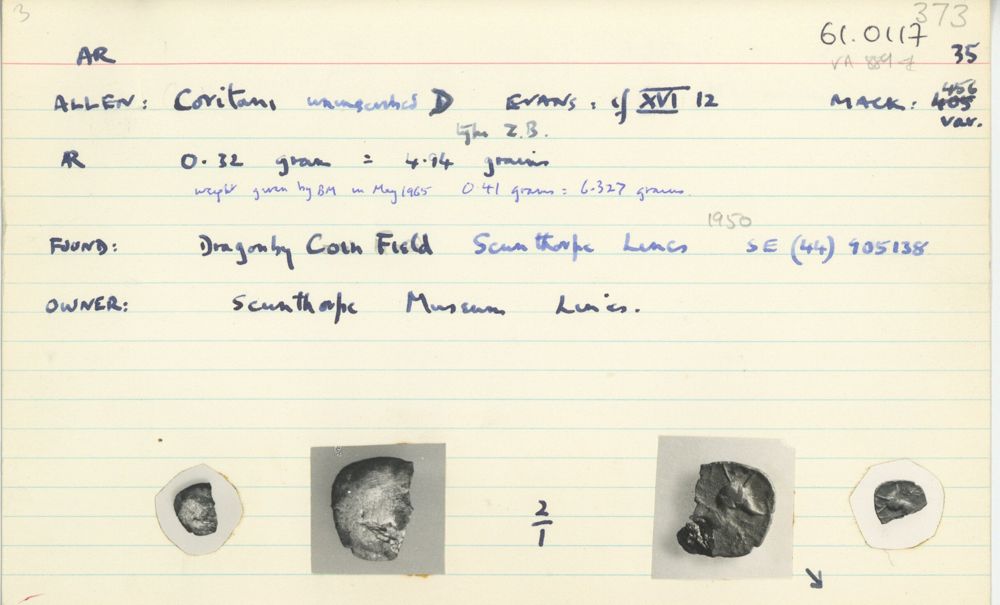 3
373
61.0117
AR 35
VA 889-1
ALLEN: Coritani uninscribed D EVANS: cf XVI 12 MACK: 405 456
var.
type Z.B.
AR 0.32 gram = 4.94 grains
weight given by BM in May 1965 0.41 grams = 6.327 grains.
1950
FOUND: Dragonby Corn Field Scunthorpe Lincs SE (44) 905138
OWNER: Scunthorpe Museum Lincs.
2
1